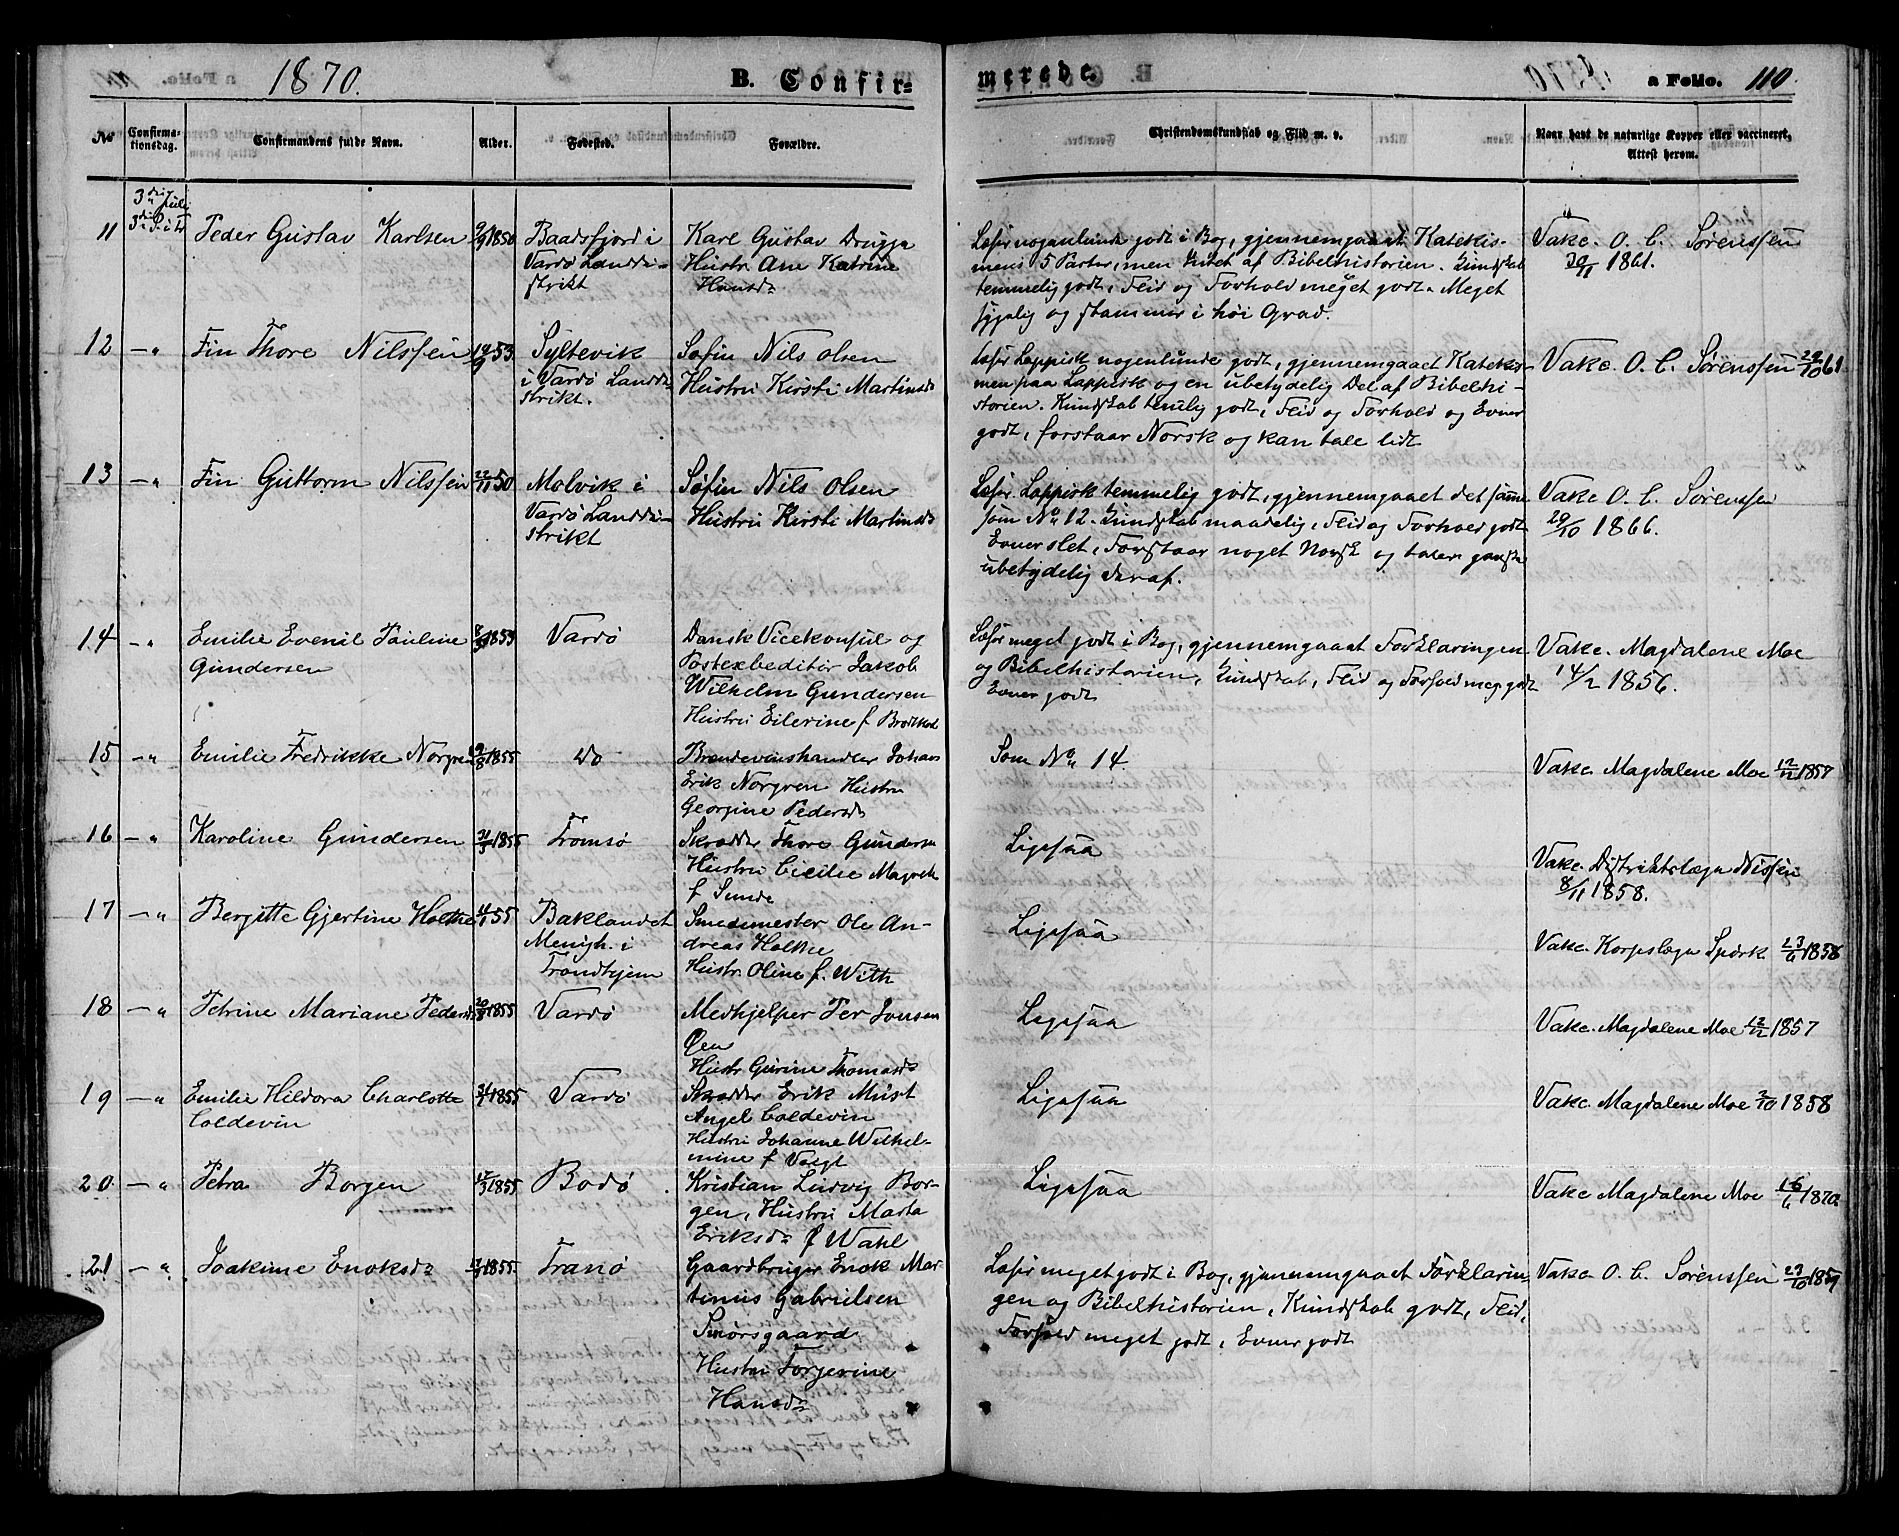 1870.
B. Confir=
merede.
a Folio. 110.
No
Confirma-
tionsdag.
Confirmandens fulde Navn.
Alder.
Fødested.
Forældre.
Christendomskundskab og Flid m. v.
Naar havt de naturlige Kopper eller vaccineret,
Attest herom.
3die Juli
11 Peder Gustav Karlsen 9/9 1850 Baadsfjord i
Vardø Landdi-
strikt
Karl Gustav
Hustr. Ane Katrine
Hansd.
Læser nogenlunde godt i Bog, gjennemgaaet Katekis-
mens 5 Parter, men lidet af Bibelhistorien. Kundskab
temmelig godt, Flid og Forhold meget godt. Meget
sygelig og stammer i høi Grad.
Vakc. O. C. Sørenssen
1861.
12 —„ Fin Thore Nilssen 53 Syltevik
i Vardø Landdi-
strikt.
Søfin Nils Olsen
Hustru Kirsti Martinsd.
Læser Lappisk nogenlunde godt, gjennemgaaet Katekis-
men paa Lappisk og en ubetydelig Del af Bibelhi-
storien. Kundskab temlig godt, Flid og Forhold og Evner
godt, forstaar Norsk og kan tale lidt
Vakc. O. C. Sørenssen 29/10 61
13 —„ Fin Guttorm Nilssen 22/11 50 Molvik i
Vardø Landdi-
strikt
Søfin Nils Olsen
Hustru Kirsti Martinsd.
Læser Lappisk temmelig godt, gjennemgaaet det samme
som No 12. Kundskab maadelig, Flid og Forhold godt
Evner slet, Forstaar noget Norsk og taler ganske
ubetydelig deraf.
Vakc O. C. Sørenssen
29/10 1866.
14 —„ Emilie Evenil Pauline
Gundersen
1853 Vardø
Dansk Vicekonsul og
Postexbeditør Jakob
Wilhelm Gundersen
Hustru Eilerine f
Læser meget godt i Bog, gjennemgaaet Forklaringen
og Bibelhistorien, Kundskab, Flid og Forhold meg godt
Evner godt
Vakc. Magdalene Moe
14/2 1856.
15 —„ Emilie Fredrikke Norgren 1855 do
Brændevinshandler Johan
Erik Norgren Hustru
Georgine Pedersd.
Som No 14.
Vakc. Magdalene Moe 12/12 1857
16 —„ Karoline Gundersen 1855 Tromsø
Skrædder Thore Gundersen
Hustru Cicilie
f Sunde
Ligesaa
Vakc. Distriktslæge Nissen
8/11 1858.
17 —„ Bergitte Gjertine Holthe 55 Baklandet
Menigh. i
Trondhjem
Smedemester Ole An-
dreas Holthe
Hustr. Oline f. With
Ligesaa
Vakc. Korpslæge Spørk 23/6 1858
18 —„ Petrine Mariane Pedersd. 20/8 1855 Vardø
Medhjelper Per Jonsen
Øen
Hustr Gurine Thomasd.
Ligesaa
Vakc. Magdalene Moe 12/12 1857
19 —„ Emilie Hildora Charlotte
Coldevin
1855 Vardø
Skrædder Erik Must
Angel Coldevin
Hustru Johanne Wilhel-
mine f Voigt
Ligesaa
Vakc. Magdalene Moe 2/10 1858
20 —„ Petra Borgen 17/3 1855 Bodø
Kristian Ludvig Bor-
gen, Hustru Marta
Eriksd. f Wahl
Ligesaa
Vakc Magdalene Moe 16/6 1870
21 —„ Joakime Enoksd. 1855 Tranø
Gaardbruger Enok Mar-
tinus Gabrielsen
Smørsgaard
Hustru Torgerine
Hansd.
Læser meget godt i Bog, gjennemgaaet Forklarin-
gen og Bibelhistorien, Kundskab godt, Flid,
Forhold meget godt, Evner godt
Vakc. O. C. Sørenssen 23/10 1859